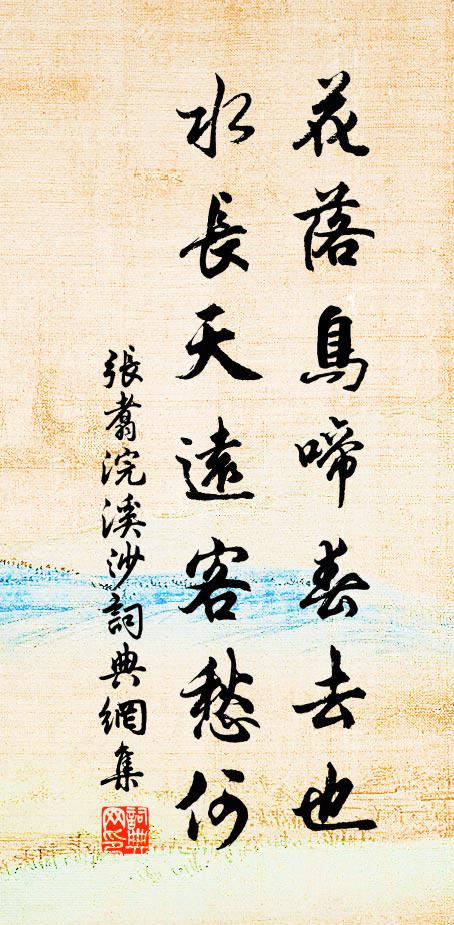 花落鳥啼春去也
水長天遠客愁何
張翥浣溪沙詞典網集
詞典網印